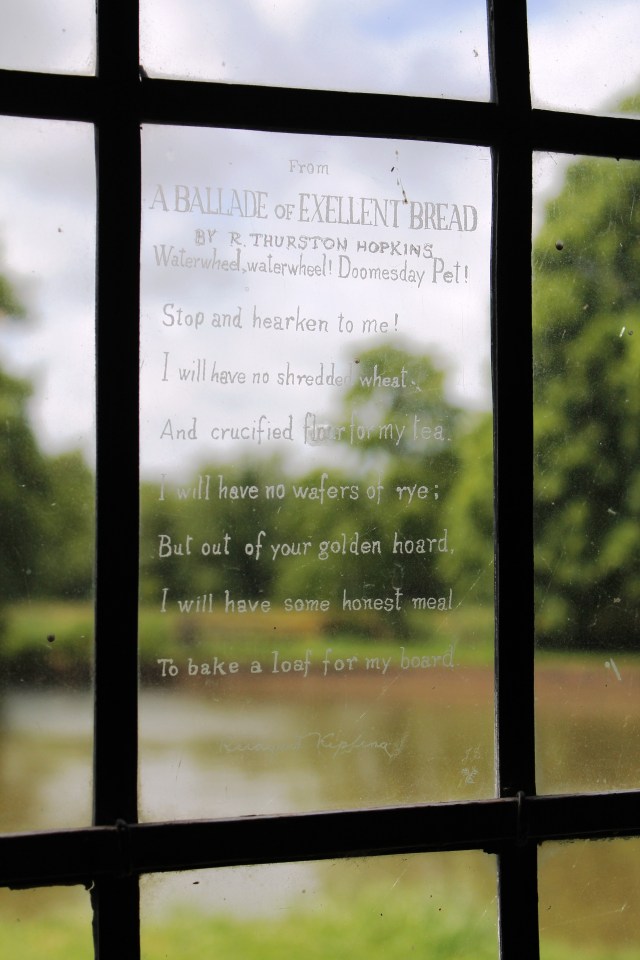 From
A BALLADE OF EXELLENT BREAD
BY R. THURSTON HOPKINS
Waterwheel, waterwheel! Doomesday Pet!
Stop and hearken to me!
I will have no shredded wheat,
And crucified flour for my tea.
I will have no wafers of rye;
But out of your golden hoard,
I will have some honest meal
To bake a loaf for my board
Kipling